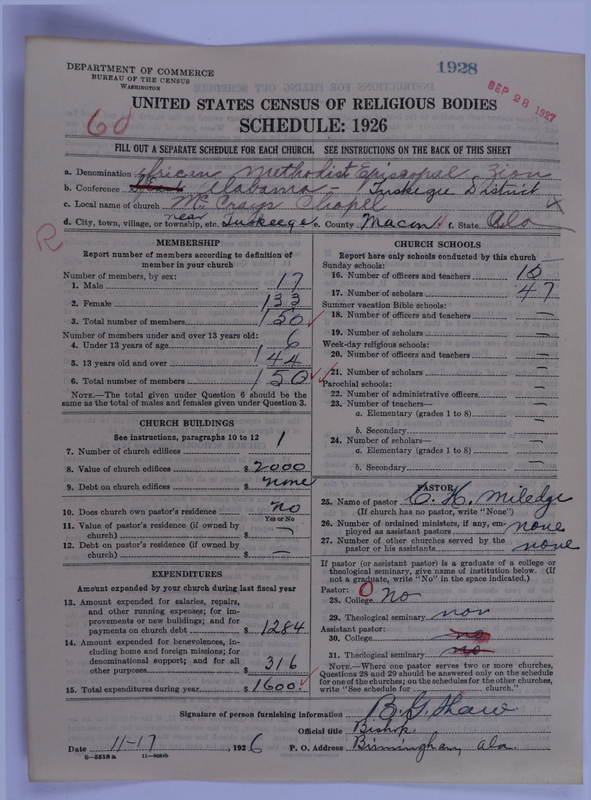 DEPARTMENT OF COMMERCE
BUREAU OF THE CENSUS
WASHINGTON
1928
SEP 28 1927
UNITED STATES CENSUS OF RELIGIOUS BODIES
SCHEDULE: 1926
60
FILL OUT A SEPARATE SCHEDULE FOR EACH CHURCH. SEE INSTRUCTIONS ON THE BACK OF THIS SHEET
a. Denomination African Methodist Episcopal Zion
b. Conference Alabama - Tuskegee District
c. Local name of church Mc Crays Chapel
d. City, town, village, or township, etc. near Tuskeege e. County Macon f. State Ala
R
MEMBERSHIP
Report number of members according to definition of
member in your church
Number of members, by sex:
1. Male 17
2. Female 133
3. Total number of members 150
Number of members under and over 13 years old:
4. Under 13 years of age 6
5. 13 years old and over 144
6. Total number of members 150
NOTE.—The total given under Question 6 should be
same as the total of males and females given under Question 3.
CHURCH BUILDINGS
See instructions, paragraphs 10 to 12
7. Number of church edifices 1
8. Value of church edifices $ 2000
9. Debt on church edifices $ none
10. Does church own pastor's residence no
Yes or No
11. Value of pastor's residence (if owned by
church) $ —
12. Debt on pastor's residence (if owned by
church) $ —
EXPENDITURES
Amount expended by your church during last fiscal year
13. Amount expended for salaries, repairs,
and other running expenses; for im-
provements or new buildings; and for
payments on church debt $ 1284
14. Amount expended for benevolences, in-
cluding home and foreign missions; for
denominational support; and for all
other purposes $ 316
15. Total expenditures during year $ 1600
CHURCH SCHOOLS
Report here only schools conducted by this church
Sunday schools:
16. Number of officers and teachers 10
17. Number of scholars 47
Summer vacation Bible schools:
18. Number of officers and teachers —
19. Number of scholars —
Week-day religious schools:
20. Number of officers and teachers —
21. Number of scholars —
Parochial schools:
22. Number of administrative officers —
23. Number of teachers—
a. Elementary (grades 1 to 8) —
b. Secondary —
24. Number of scholars—
a. Elementary (grades 1 to 8) —
b. Secondary —
PASTOR
25. Name of pastor C. H. Miledge
(If church has no pastor, write "None")
26. Number of ordained ministers, if any, em-
ployed as assistant pastors none
27. Number of other churches served by the
pastor or his assistants none
If pastor (or assistant pastor) is a graduate of a college or
theological seminary, give name of institution below. (If
not a graduate, write "No" in the space indicated.)
Pastor: 0
28. College no
29. Theological seminary non
Assistant pastor:
30. College no
31. Theological seminary no
NOTE.—Where one pastor serves two or more churches,
Questions 28 and 29 should be answered only on the schedule
for one of the churches; on the schedules for the other churches,
write "See schedule for church."
Signature of person furnishing information B. G. Shaw
Official title Bishop
Date 11-17, 1926 P. O. Address Birmingham, Ala.
8-5518a